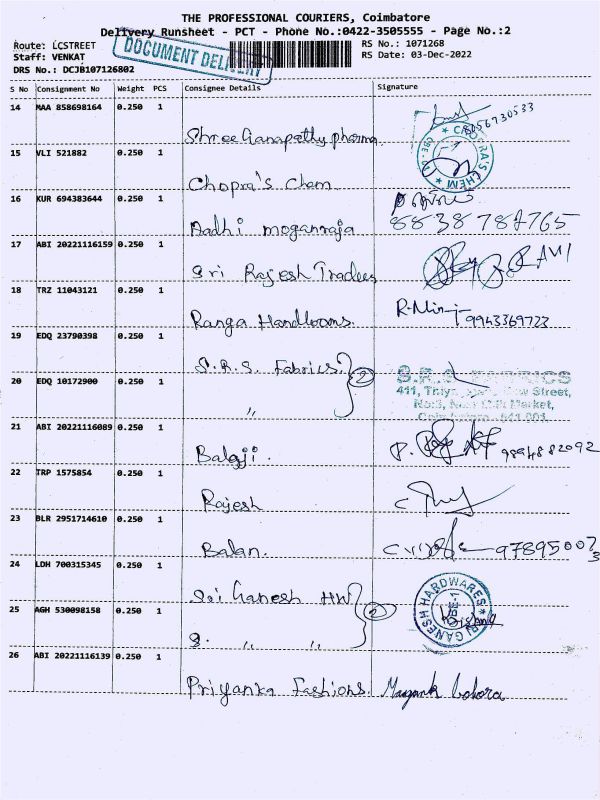 THE PROFESSIONAL COURIERS, Coimbatore
Delivery Runsheet - PCT - Phone No.:0422-3505555 - Page No.:2
Route: LCSTREET
Staff: VENKAT
DRS No.: DCJB107126802
DOCUMENT DELIVERY
RS No.: 1071268
RS Date: 03-Dec-2022
S No Consignment No Weight PCS Consignee Details Signature
14 MAA 858698164 0.250 1
Shree Ganapathy pharma
8056730533
15 VLI 521882 0.250 1
Chopra's Chem
CHOPRA'S CHEM
16 KUR 694383644 0.250 1
Aadhi moganraja
8838787765
17 ABI 20221116159 0.250 1
Sri Rajesh Traders
RAVI
18 TRZ 11043121 0.250 1
Ranga Handlooms.
9943369723
19 EDQ 23790398 0.250 1
S.R.S. Fabrics. 2
S.R.S FABRICS
20 EDQ 10172900 0.250 1
"
411, New Street,
Market,
641 001.
21 ABI 20221116089 0.250 1
Balaji.
9894882092
22 TRP 1575854 0.250 1
Rajesh
23 BLR 2951714610 0.250 1
Balan.
24 LDH 700315345 0.250 1
Sri Ganesh HW
25 AGH 530098158 0.250 1
2
SRI GANESH HARDWARES
CBE-1
S. " "
26 ABI 20221116139 0.250 1
Priyanka Fashions. Mayank Lohora